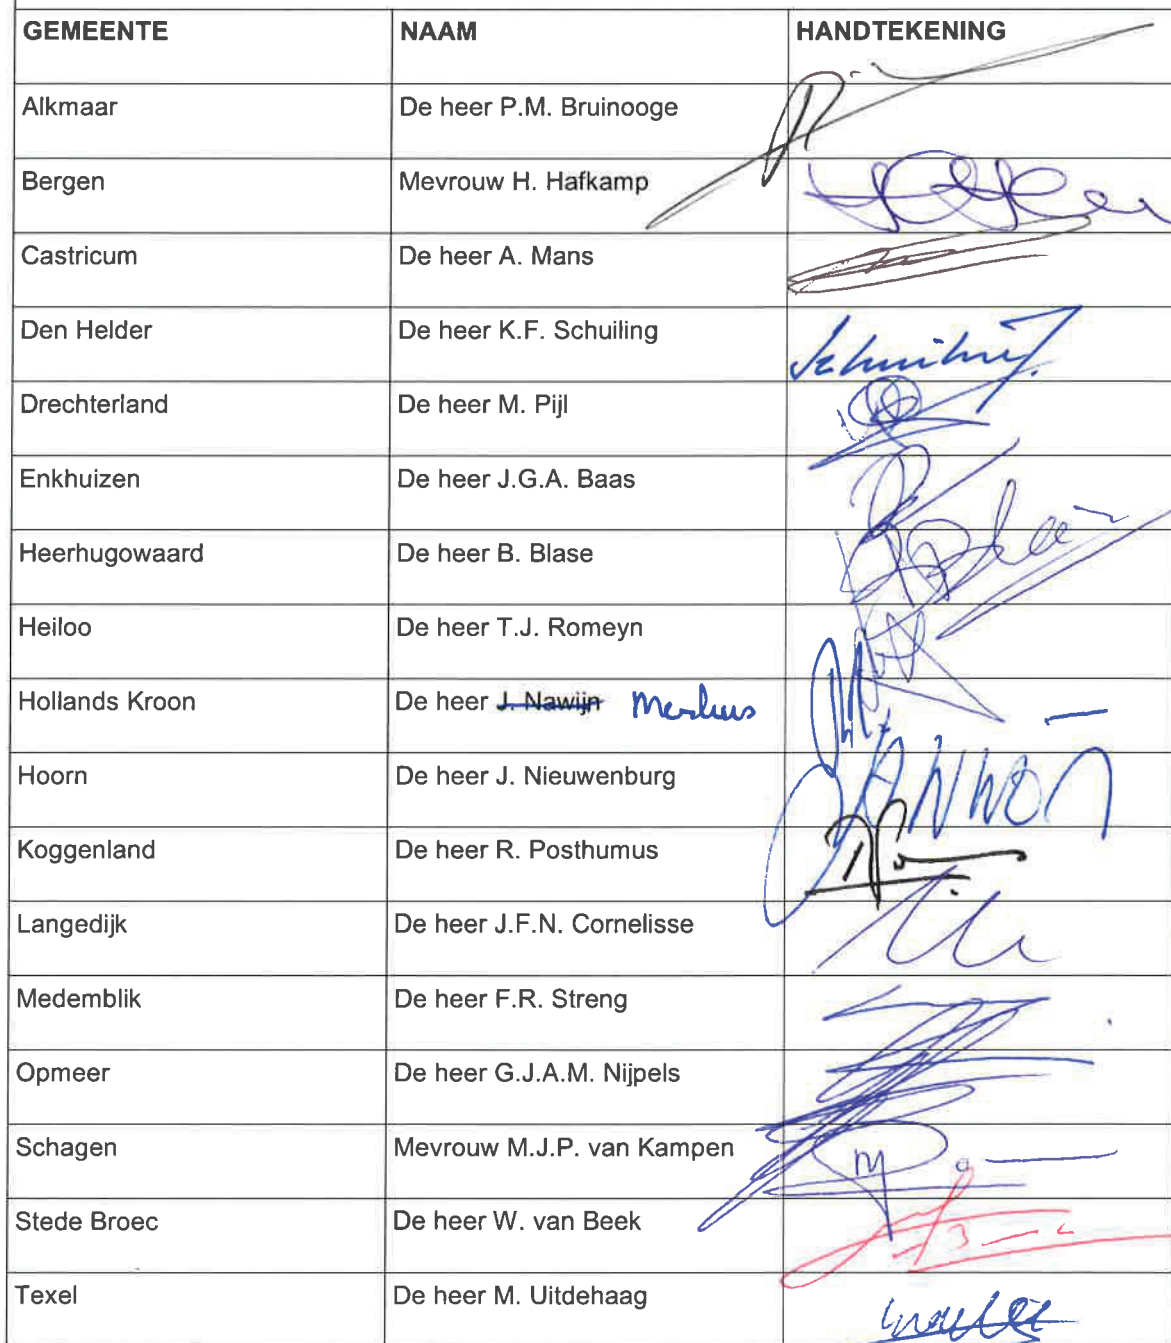 GEMEENTE NAAM HANDTEKENING
Alkmaar De heer P.M. Bruinooge
Bergen Mevrouw H. Hafkamp
Castricum De heer A. Mans
Den Helder De heer K.F. Schuiling
Drechterland De heer M. Pijl
Enkhuizen De heer J.G.A. Baas
Heerhugowaard De heer B. Blase
Heiloo De heer T.J. Romeyn
Hollands Kroon De heer J. Nawijn
Hoorn De heer J. Nieuwenburg
Koggenland De heer R. Posthumus
Langedijk De heer J.F.N. Cornelisse
Medemblik De heer F.R. Streng
Opmeer De heer G.J.A.M. Nijpels
Schagen Mevrouw M.J.P. van Kampen
Stede Broec De heer W. van Beek
Texel De heer M. Uitdehaag